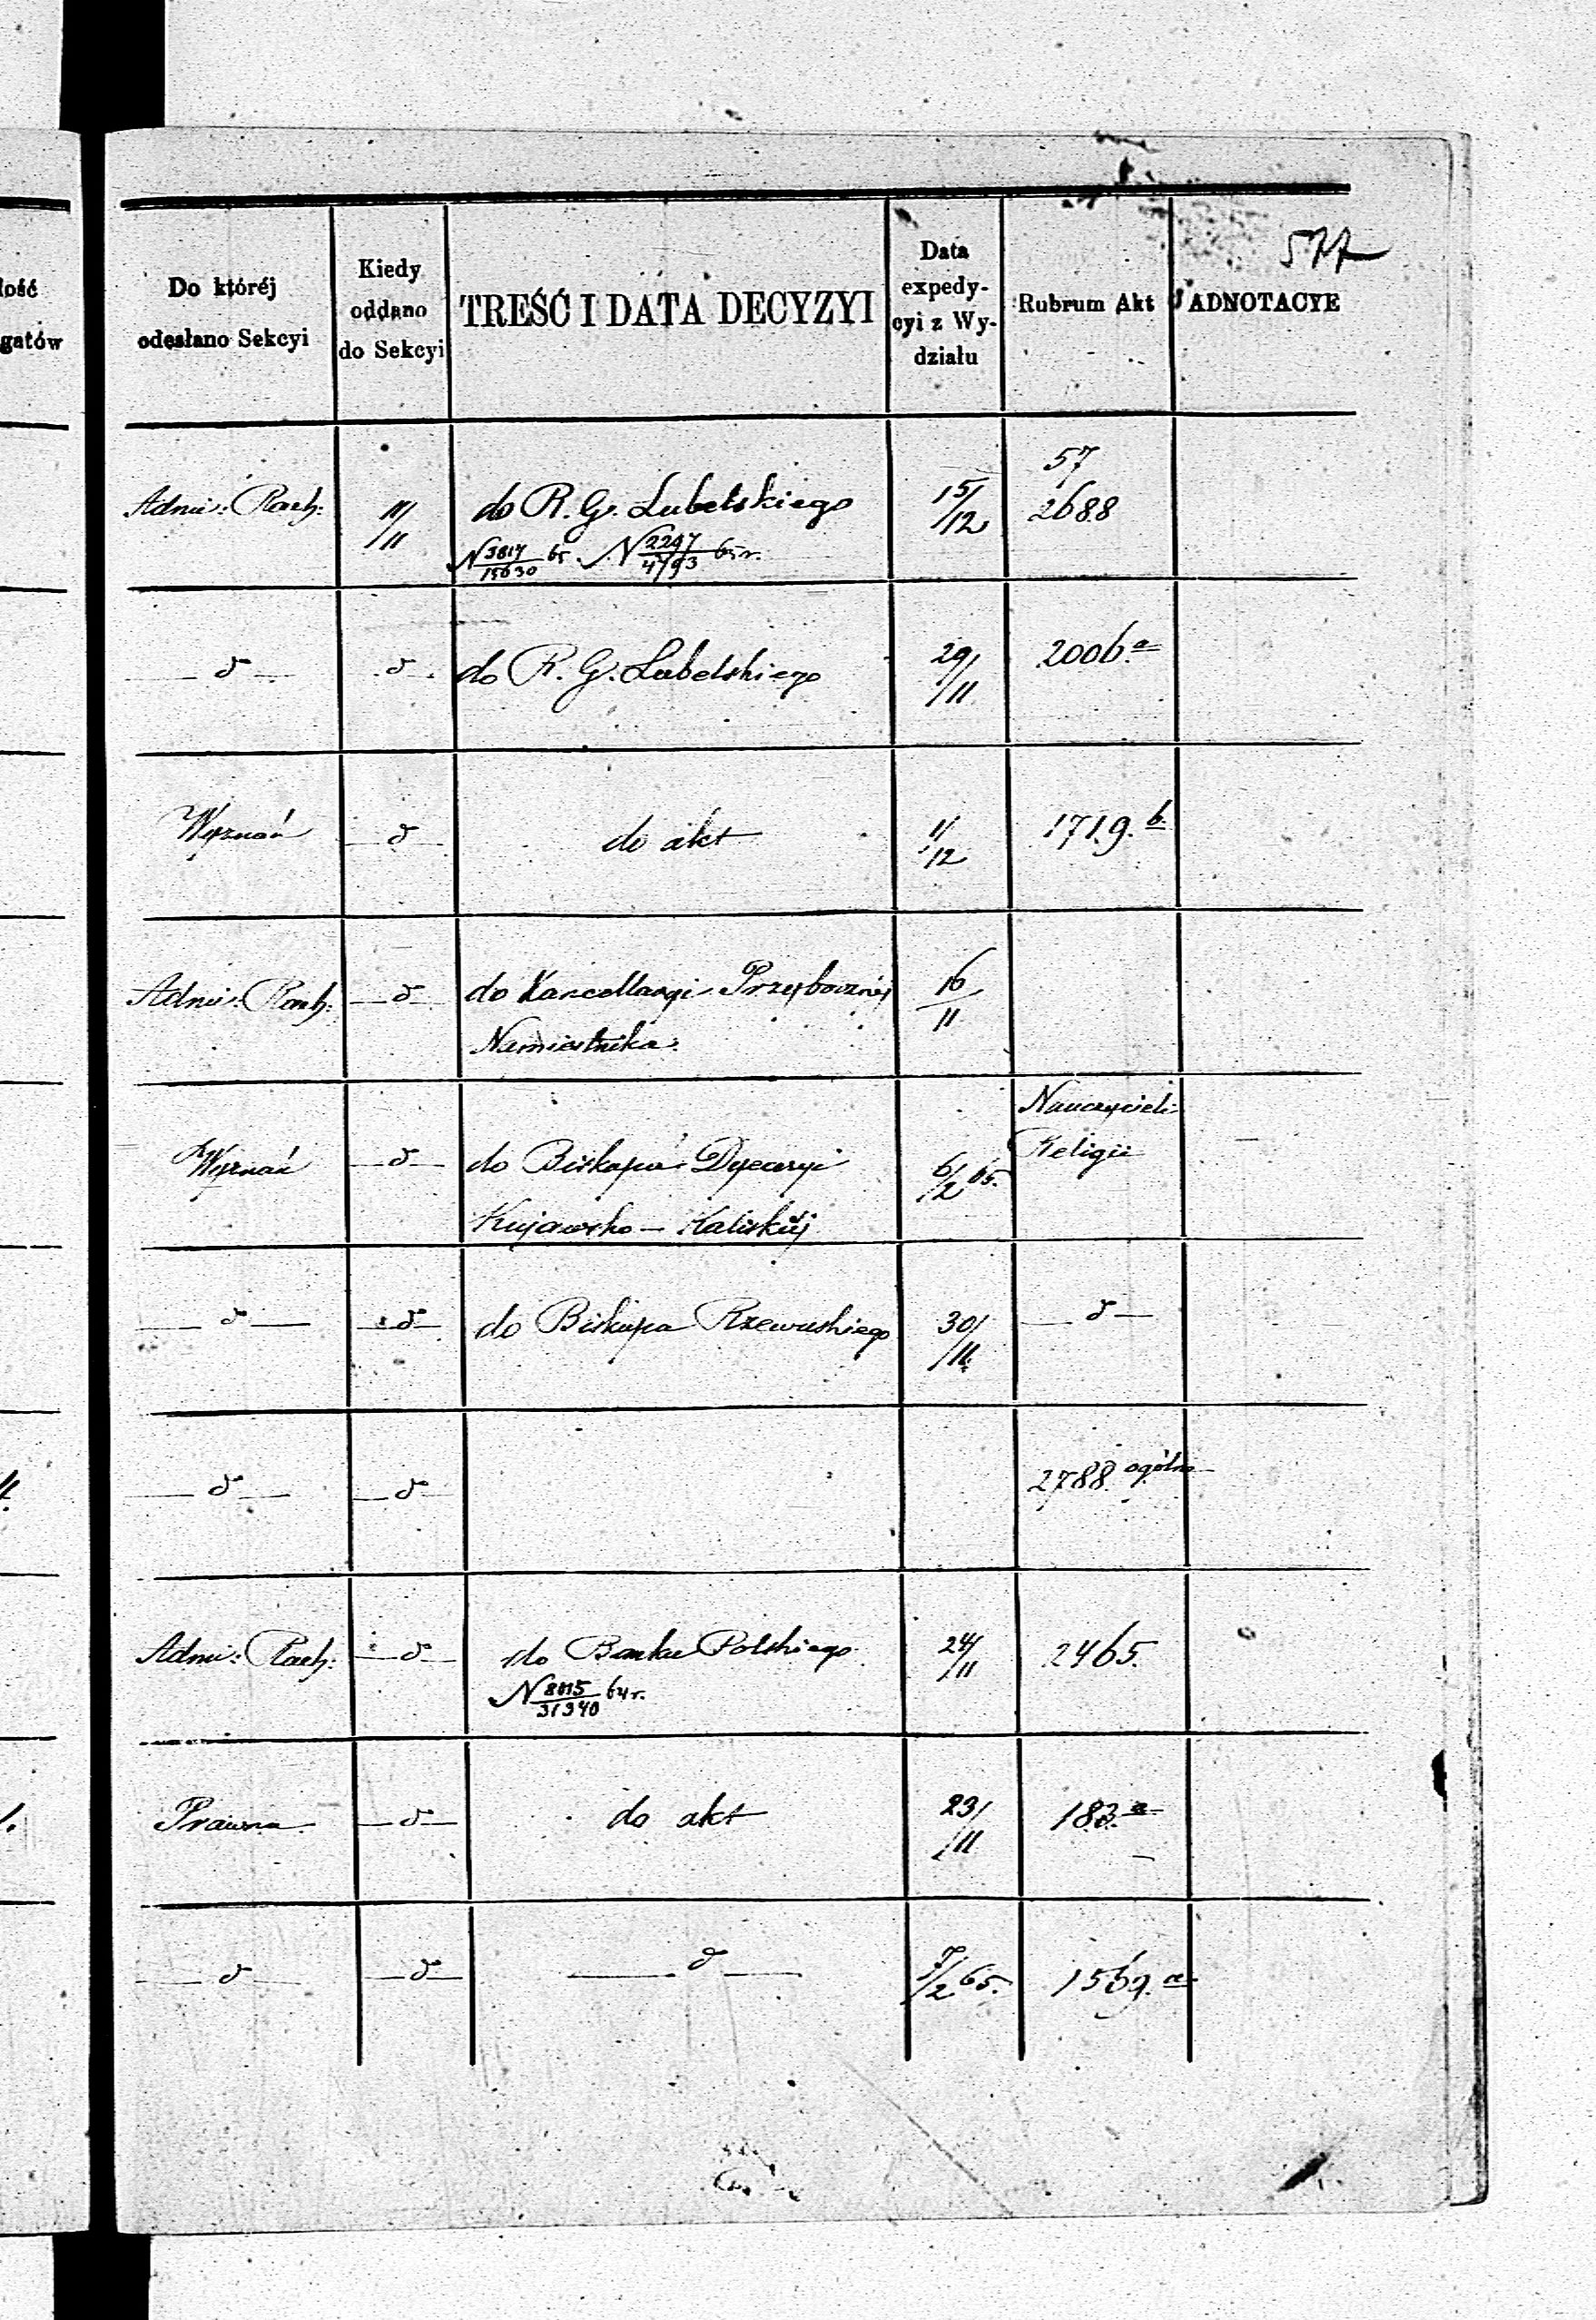 577
lość
gatów
Do któréj
odesłano Sekcyi
Kiedy
oddano
do Sekcyi
TREŚĆ I DATA DECYZYI
Data
expedy-
cyi z Wy-
działu
Rubrum Akt
ADNOTACYE
Admi: Rach: 11/11 do R. G. Lubelskiego 15/12 57 2688
N 3817/15630 65 N 2247/4793 65 r.
d d do R. G. Lubelskiego 29/11 2006.a
Wyznań d do akt 1/12 1719.b
Admi: Rach: d do Kancellaryi Przybocznéj 16/11
Namiestnika.
Nauczyciel:
Wyznań d do Biskupa Dyecezyi 6/2 65. Religii
Kujawsko - Kaliskiéj
d d do Biskupa Rzewuskiego 30/11 d
d d 2788. ogólne
Admi: Rach: d do Banku Polskiego 24/11 2465.
N 8815/31340 64 r.
Prawna d do akt 23/11 183.a
d d d 7/2 65. 1569.a